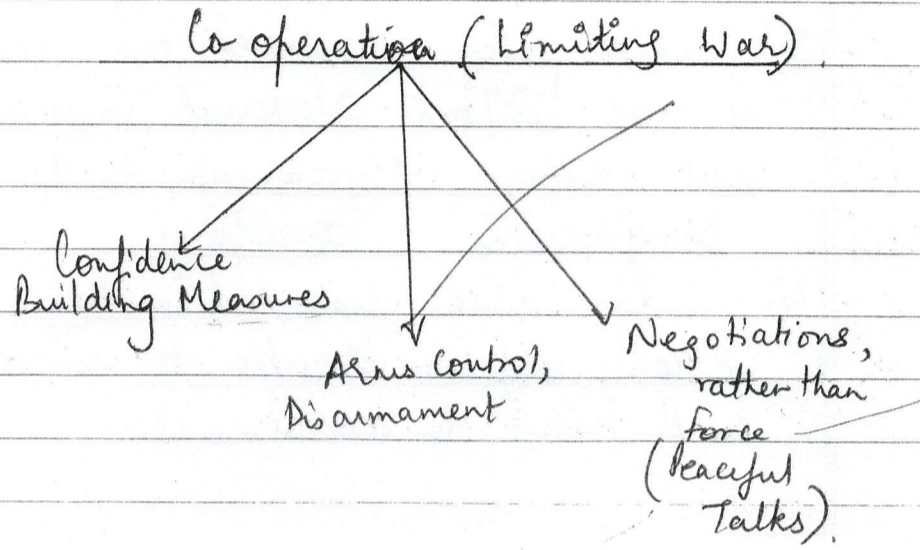 Co operation (Limiting War)
Confidence
Building Measures
Arms Control,
Disarmament
Negotiations,
rather than
force
(Peaceful
Talks).